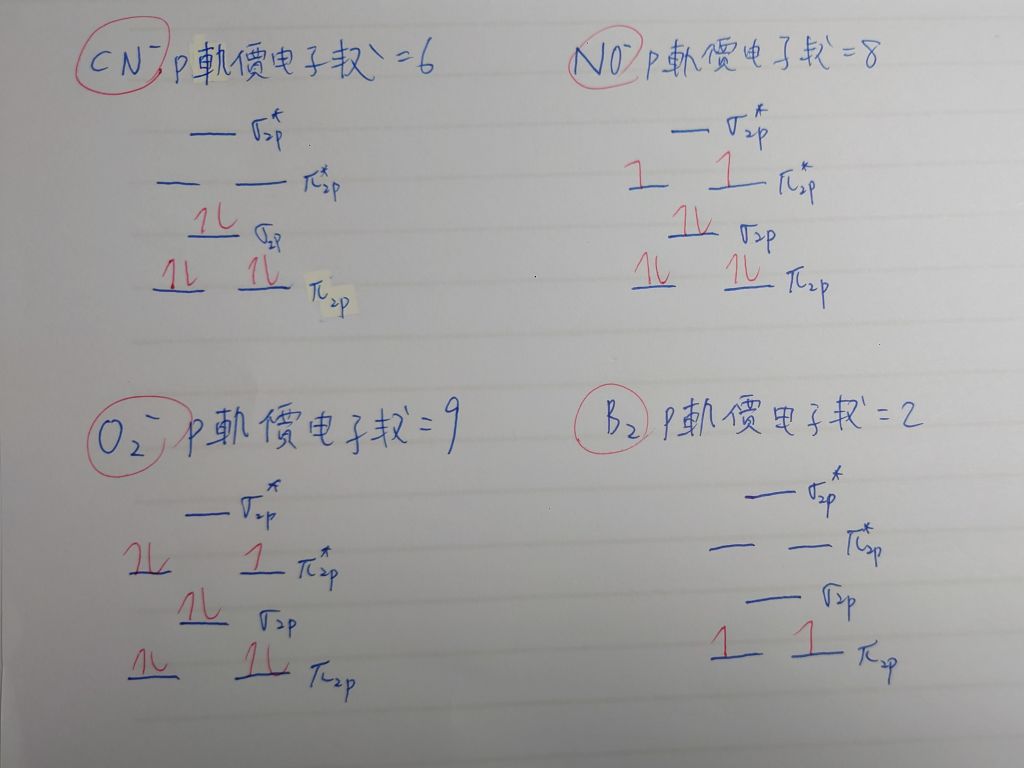 CN⁻ p軌價电子数=6
σ₂p*
π₂p*
σ₂p
π₂p
NO⁻ p軌價电子数=8
σ₂p*
π₂p*
σ₂p
π₂p
O₂⁻ p軌價电子数=9
σ₂p*
π₂p*
σ₂p
π₂p
B₂ p軌價电子数=2
σ₂p*
π₂p*
σ₂p
π₂p